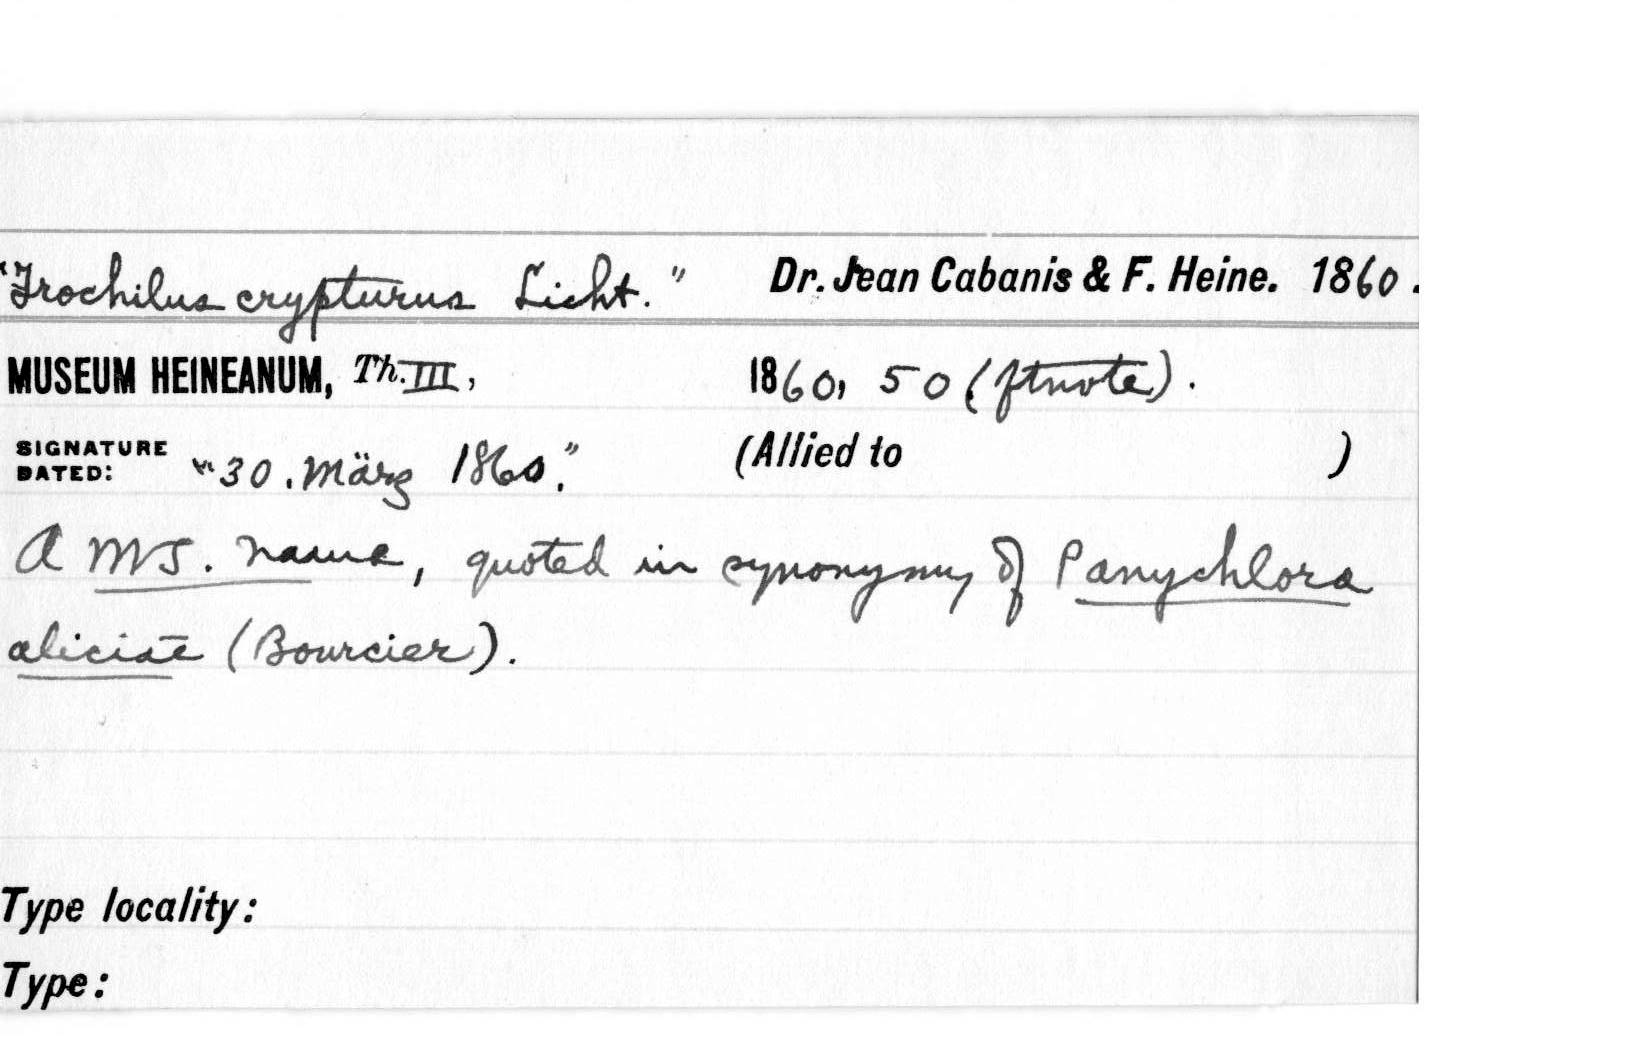 "Trochilus crypturus Licht." Dr. Jean Cabanis & F. Heine. 1860.
MUSEUM HEINEANUM, Th. III, 1860, 50 (ftnote).
SIGNATURE DATED: "30. März 1860." (Allied to )
A MS. name, quoted in synonymy of Panychlora
aliciae (Bourcier).
Type locality:
Type: